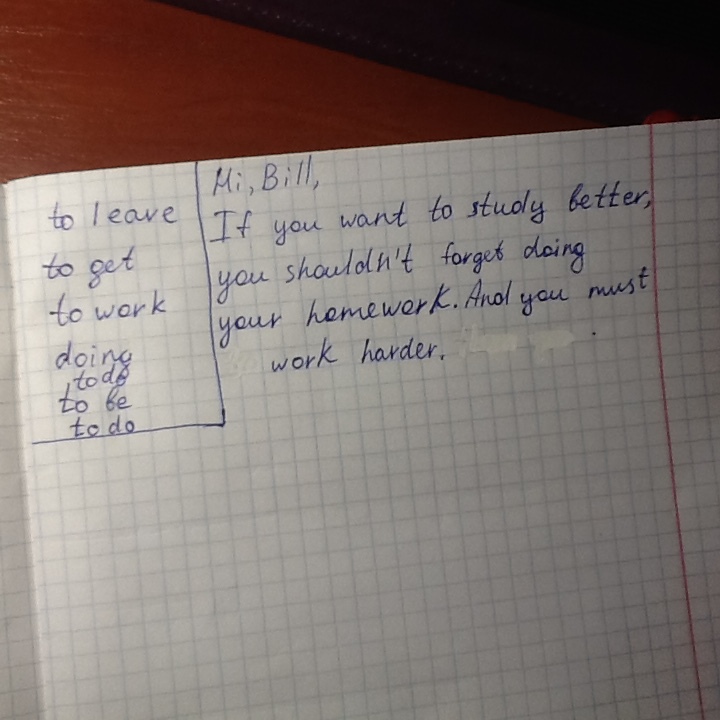 to leave
to get
to work
doing
to do
to be
to do
Hi, Bill,
If you want to study better,
you shouldn't forget doing
your homework. And you must
work harder.